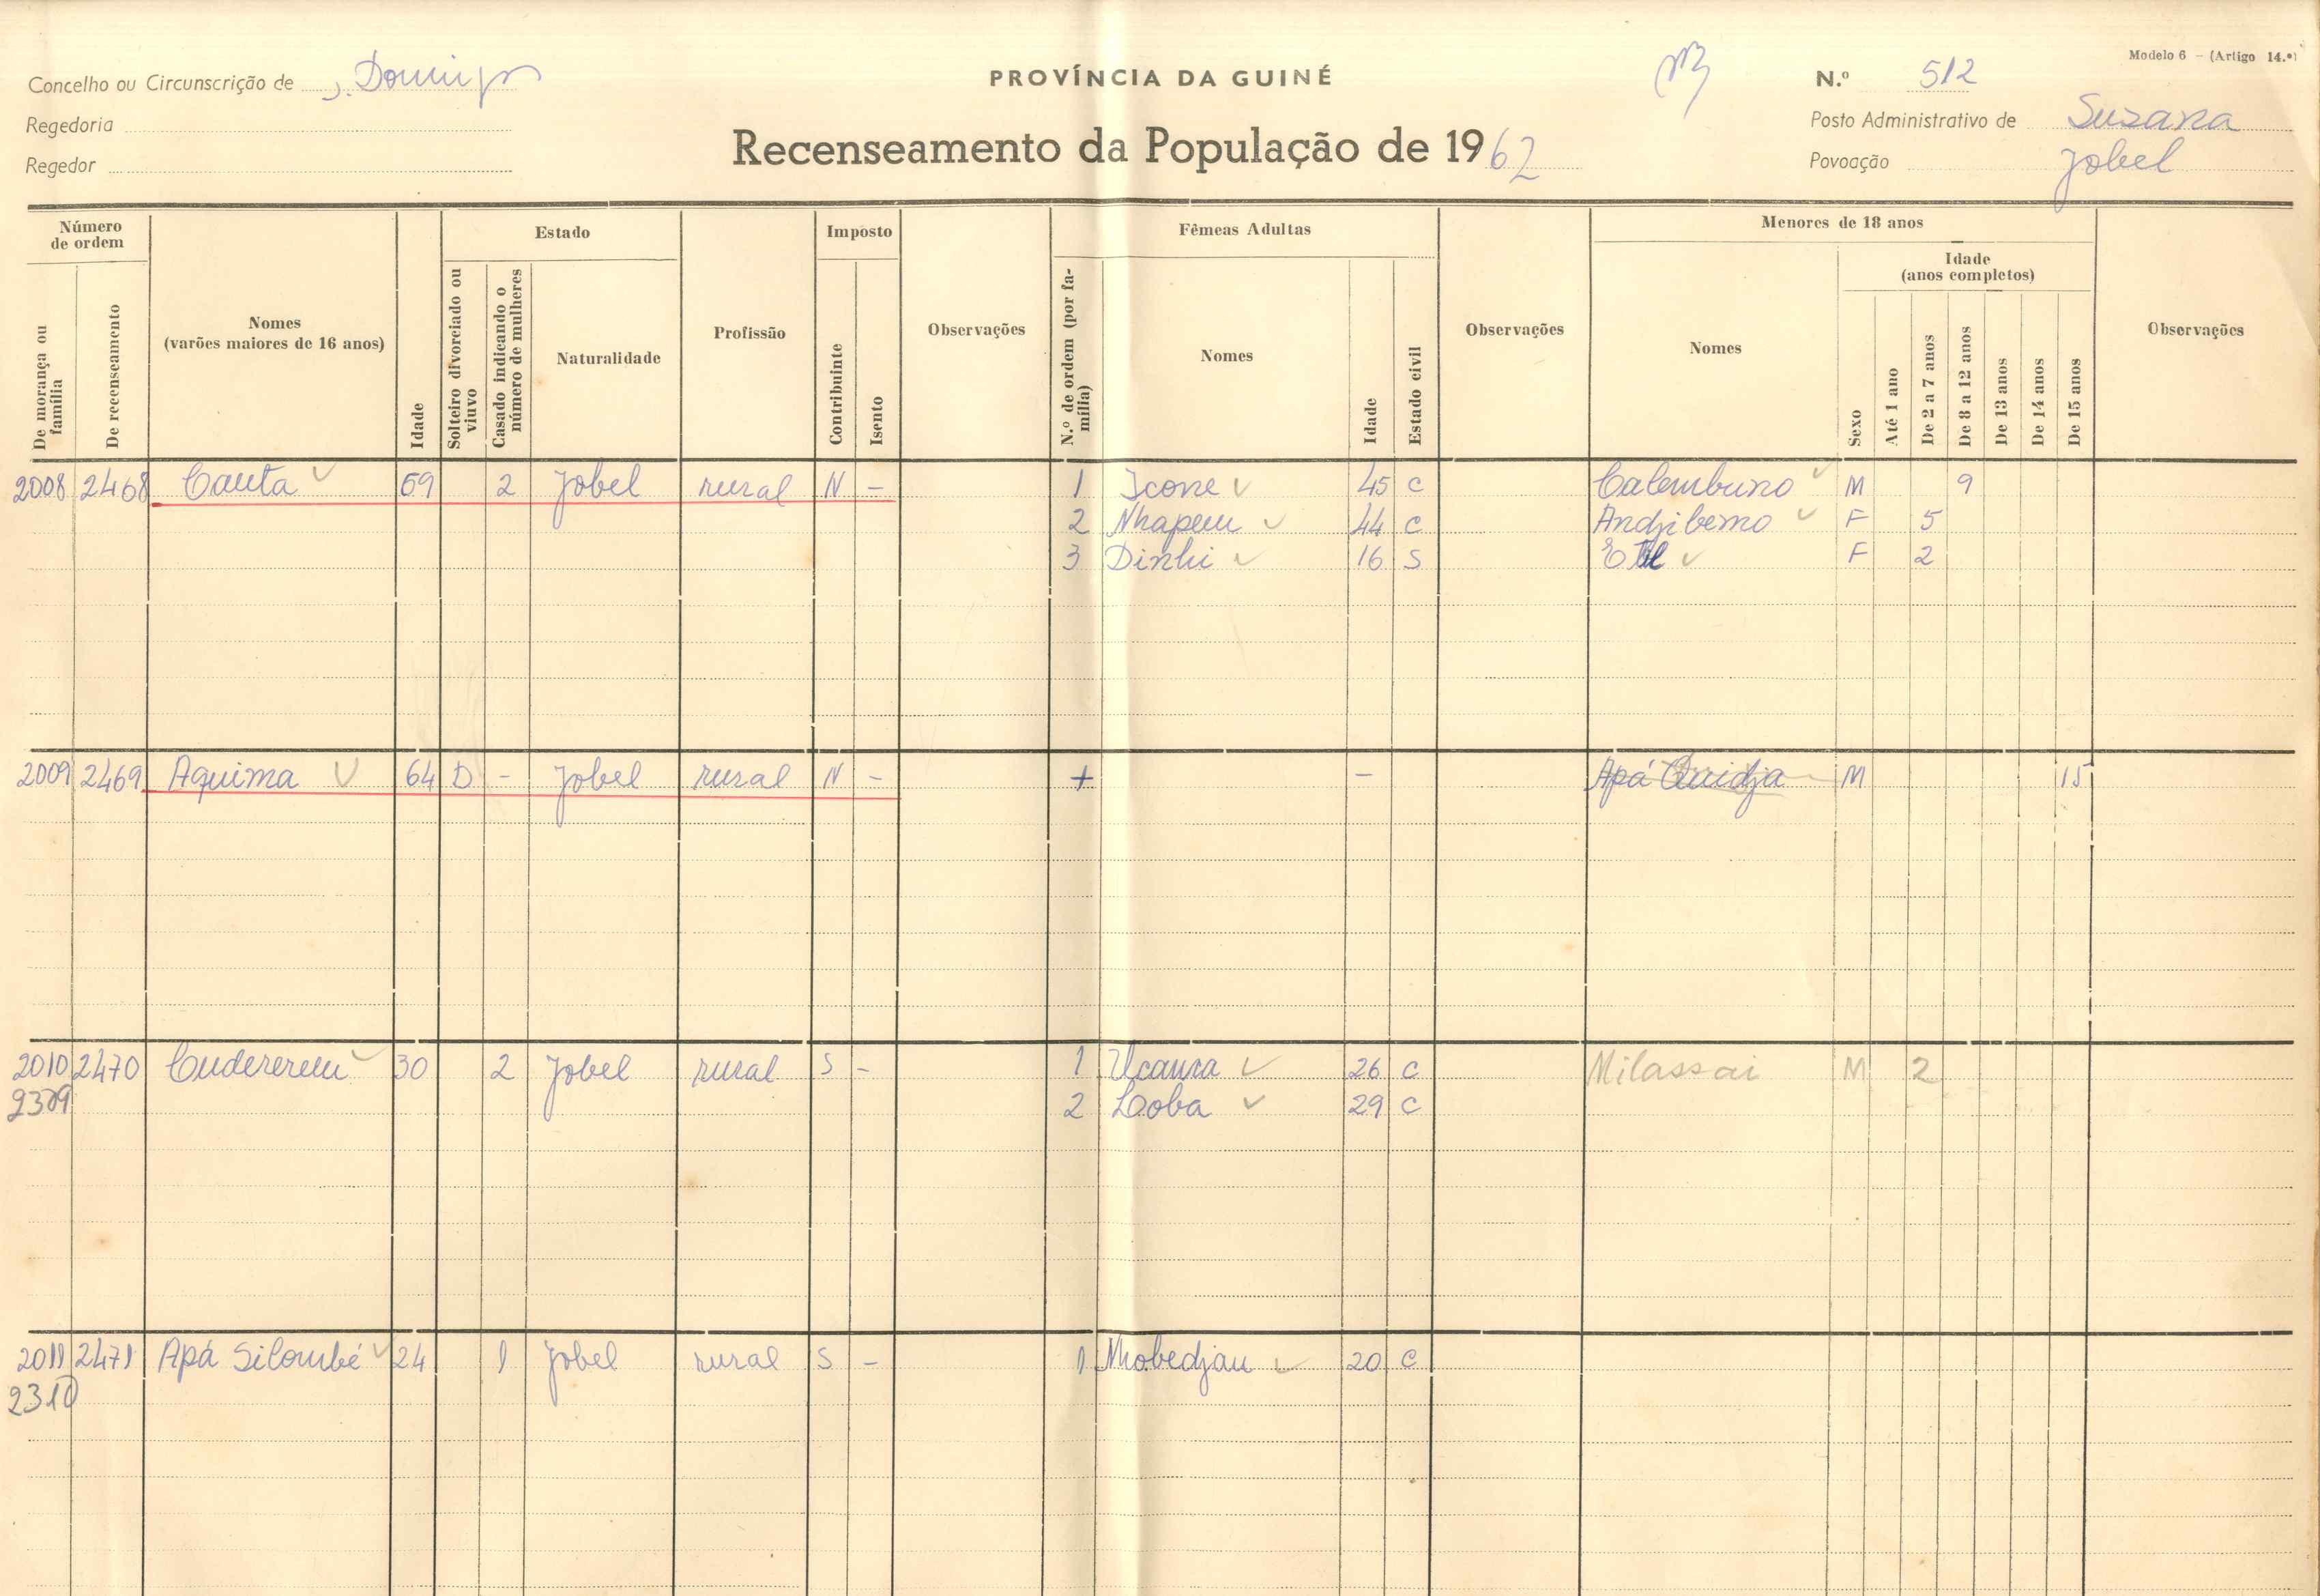 Modelo 6 - (Artigo 14.º)
Concelho ou Circunscrição de S. Domingos PROVÍNCIA DA GUINÉ N.º 512
Regedoria Recenseamento da População de 1962 Posto Administrativo de Suzana
Regedor Povoação Jobel
Número de ordem Estado Imposto Fêmeas Adultas Menores de 18 anos
Idade (anos completos)
De morança ou família De recenseamento Nomes (varões maiores de 16 anos) Idade Solteiro divorciado ou viuvo Casado indicando o número de mulheres Naturalidade Profissão Contribuinte Isento Observações N.º de ordem (por família) Nomes Idade Estado civil Observações Nomes Sexo Até 1 ano De 2 a 7 anos De 8 a 12 anos De 13 anos De 14 anos De 15 anos Observações
2008 2468 Cauta 69 2 Jobel rural N - 1 Icone 45 C Calembuno M 9
2 Nhapeu 44 C Andjibemo F 5
3 Dinhi 16 S F 2
2009 2469 Aquima 64 D - Jobel rural N - + - Apá Quidja M 15
2010 2470 Cuderereu 30 2 Jobel rural S - 1 Ucaura 26 C Milassai M 2
2309 2 Loba 29 C
2011 2471 Apá Silombé 24 1 Jobel rural S - 1 Nhobedjau 20 C
2310